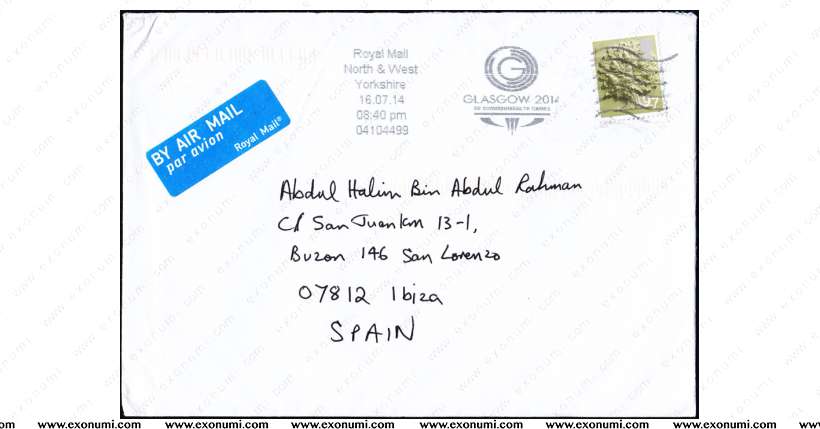 Royal Mail
North & West
Yorkshire
16.07.14
08:40 pm
04104499
GLASGOW 2014
XX COMMONWEALTH GAMES
97
BY AIR MAIL
par avion
Royal Mail®
Abdul Halim Bin Abdul Rahman
C/ San Juan km 13-1,
Buzon 146 San Lorenzo
07812 Ibiza
SPAIN
www.exonumi.com www.exonumi.com www.exonumi.com www.exonumi.com www.exonumi.com www.exonumi.com